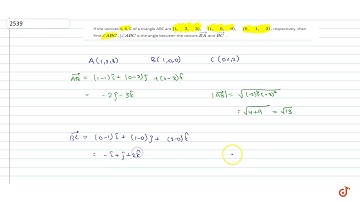 2539
If the vertices A, B, C of a triangle ABC are (1, 2, 3), 0, 0), (0, 1, 2) , respectively, then
find ∠ABC . [∠ABC is the angle between the vectors BA and BC ] .
A(1,2,3) B(1,0,0) C(0,1,2)
AB = (1-1)î + (0-2)ĵ + (0-3)k̂
= -2ĵ - 3k̂ |AB| = √(-2)²+(-3)²
= √4+9 = √13
BC = (0-1)î + (1-0)ĵ + (2-0)k̂
= -î + ĵ + 2k̂